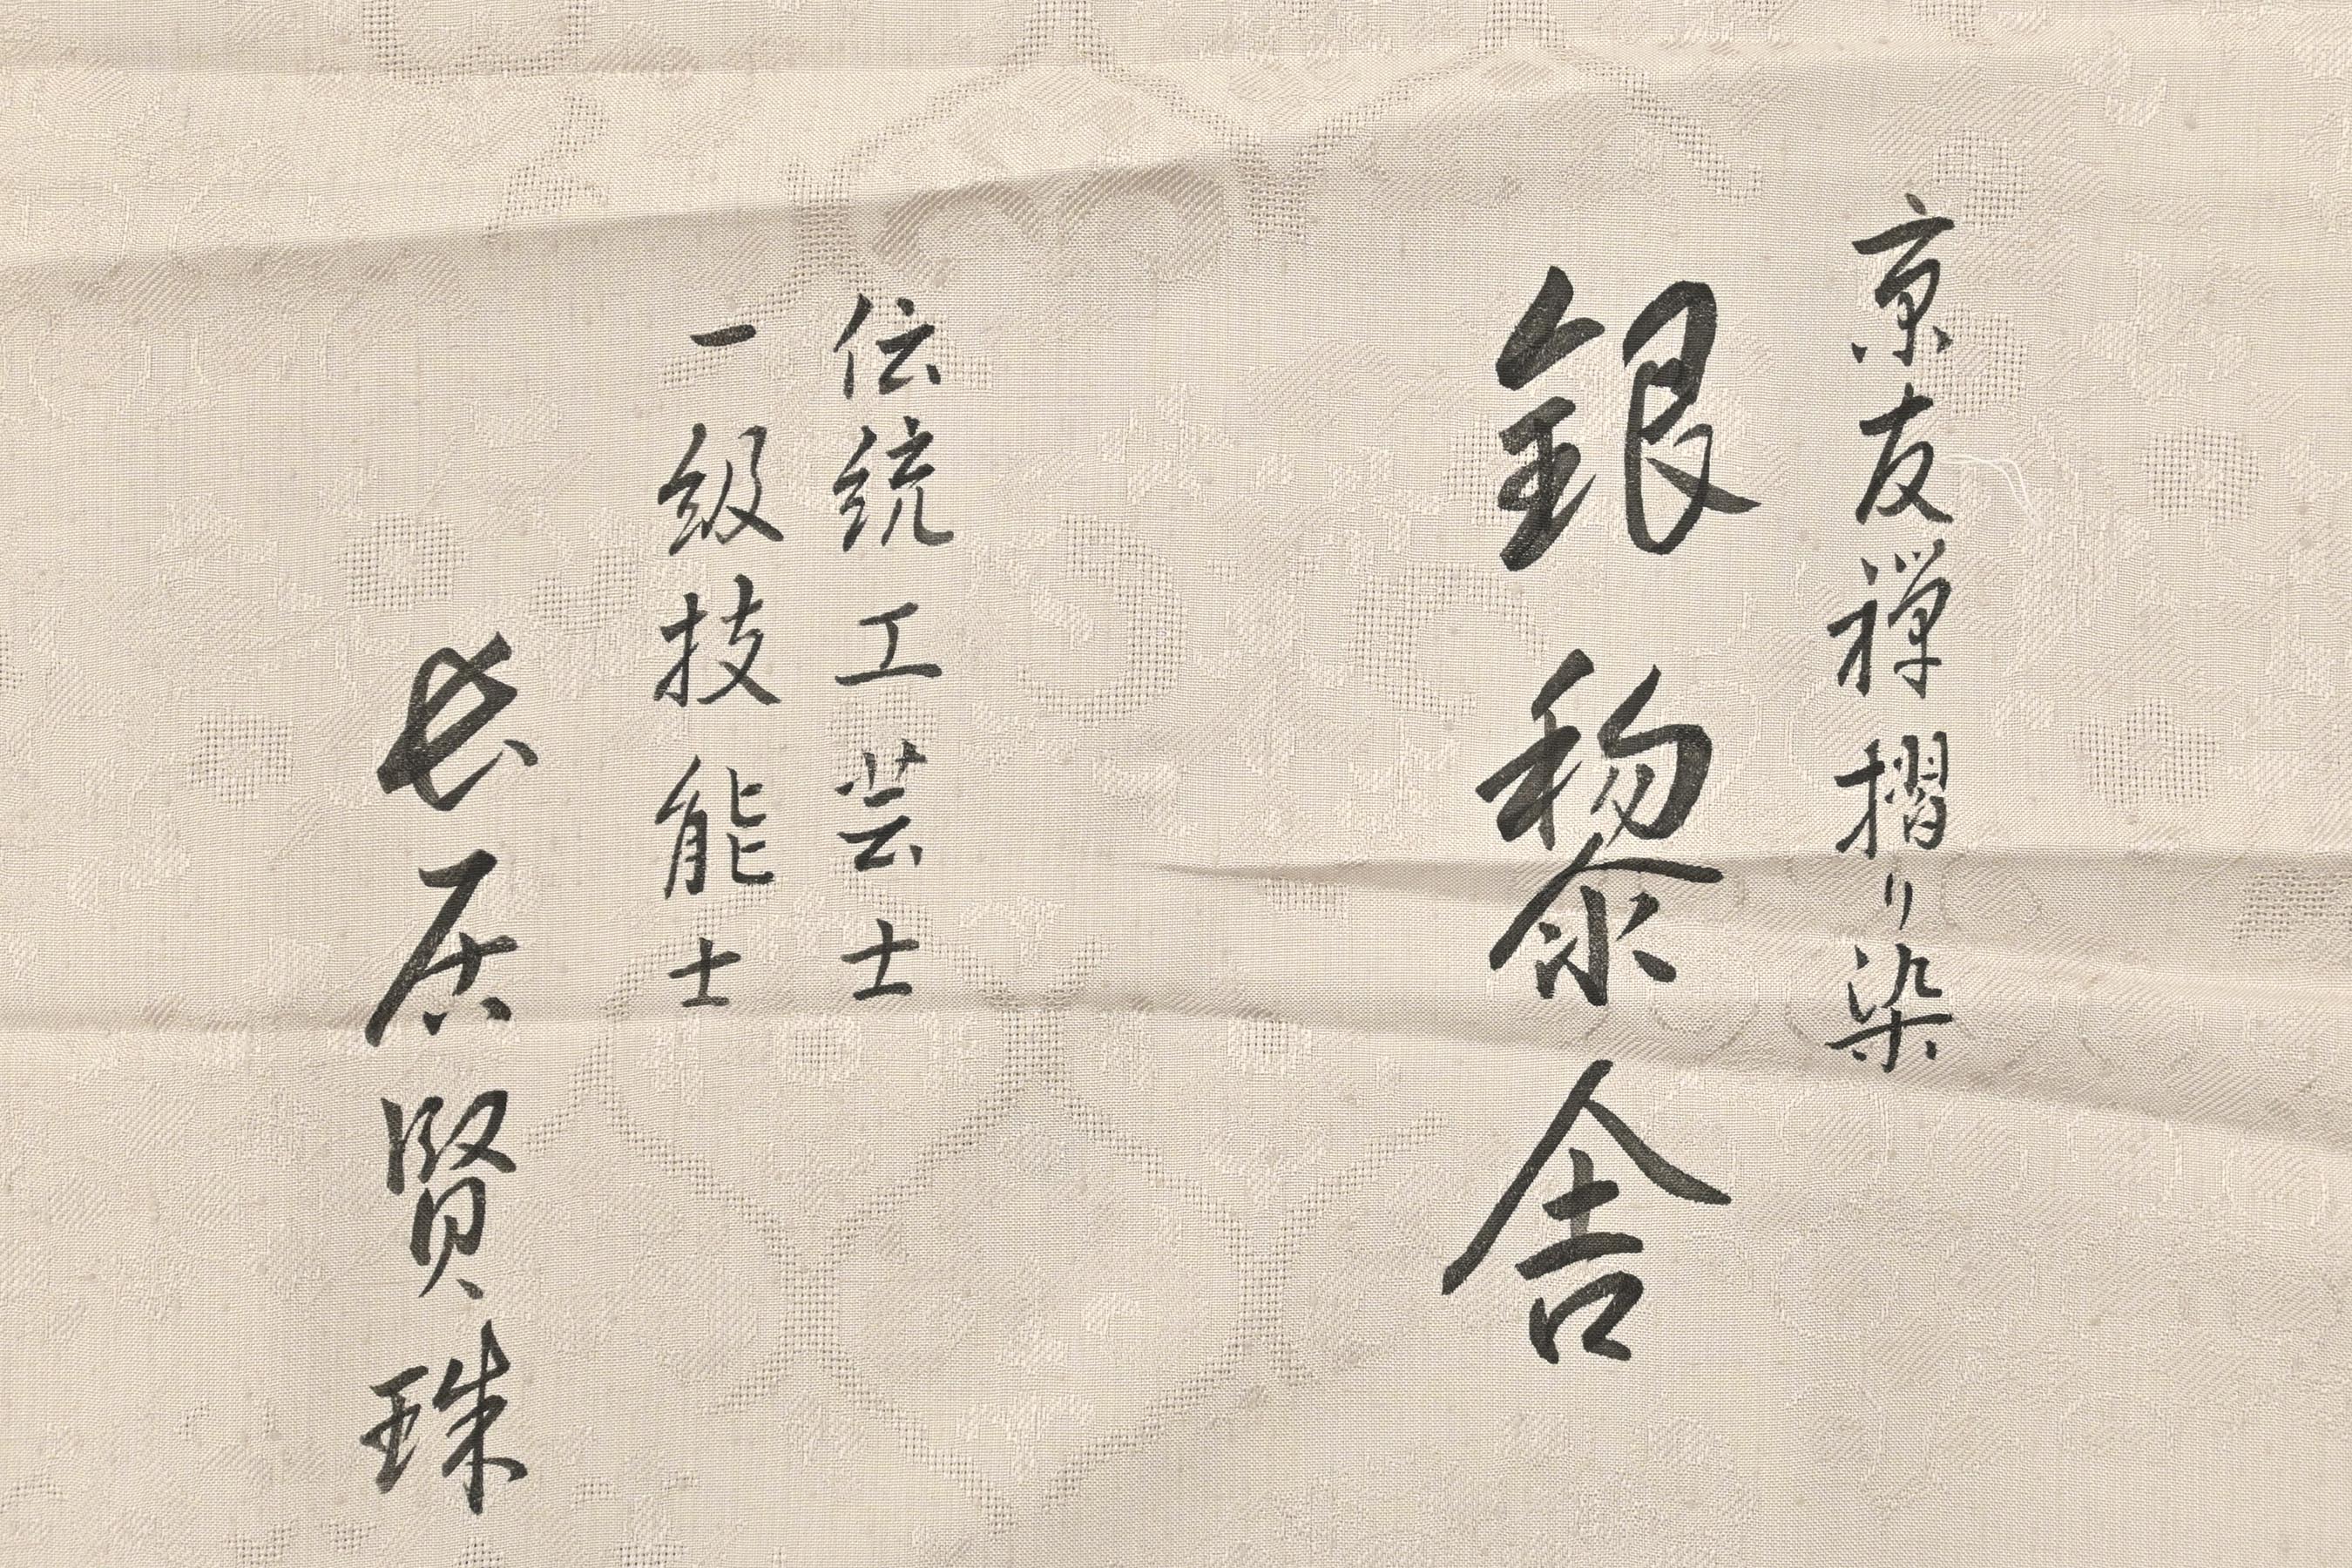 京友禅摺り染
銀黎舎
伝統工芸士
一級技能士
長居賢珠